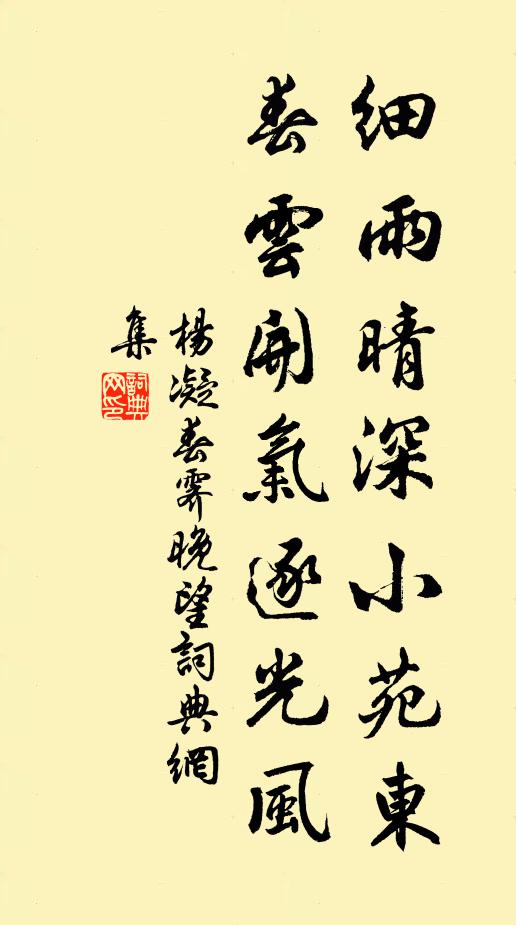 細雨晴深小苑東
春雲開氣逐光風
楊凝春霽晚望詞典網
集
詞典
网印